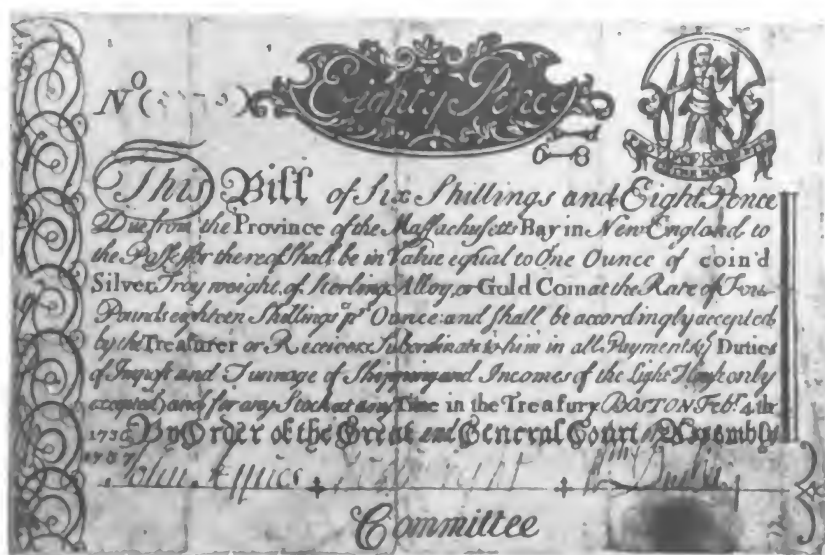 Eighty Pence
No (
6=8
This Bill of Six Shillings and Eight Pence
Due from the Province of the Massachusetts Bay in New England to
the Possessor thereof Shall be in Value equal to One Ounce of coin'd
Silver, Troy weight, of Sterling Alloy, or Gold Coin at the Rate of Four
Pounds eighteen Shillings pr Ounce: and shall be accordingly accepted
by the Treasurer or Receivers Subordinate to him in all Payments
Duties
of Impost and Tunnage of Shipping and Incomes of the Light House only
excepted) and for any Stock at any Time in the Treasury. BOSTON Febr. 4. th
1736 By Order of the Great and General Court or Assembly
1737
John
Committee